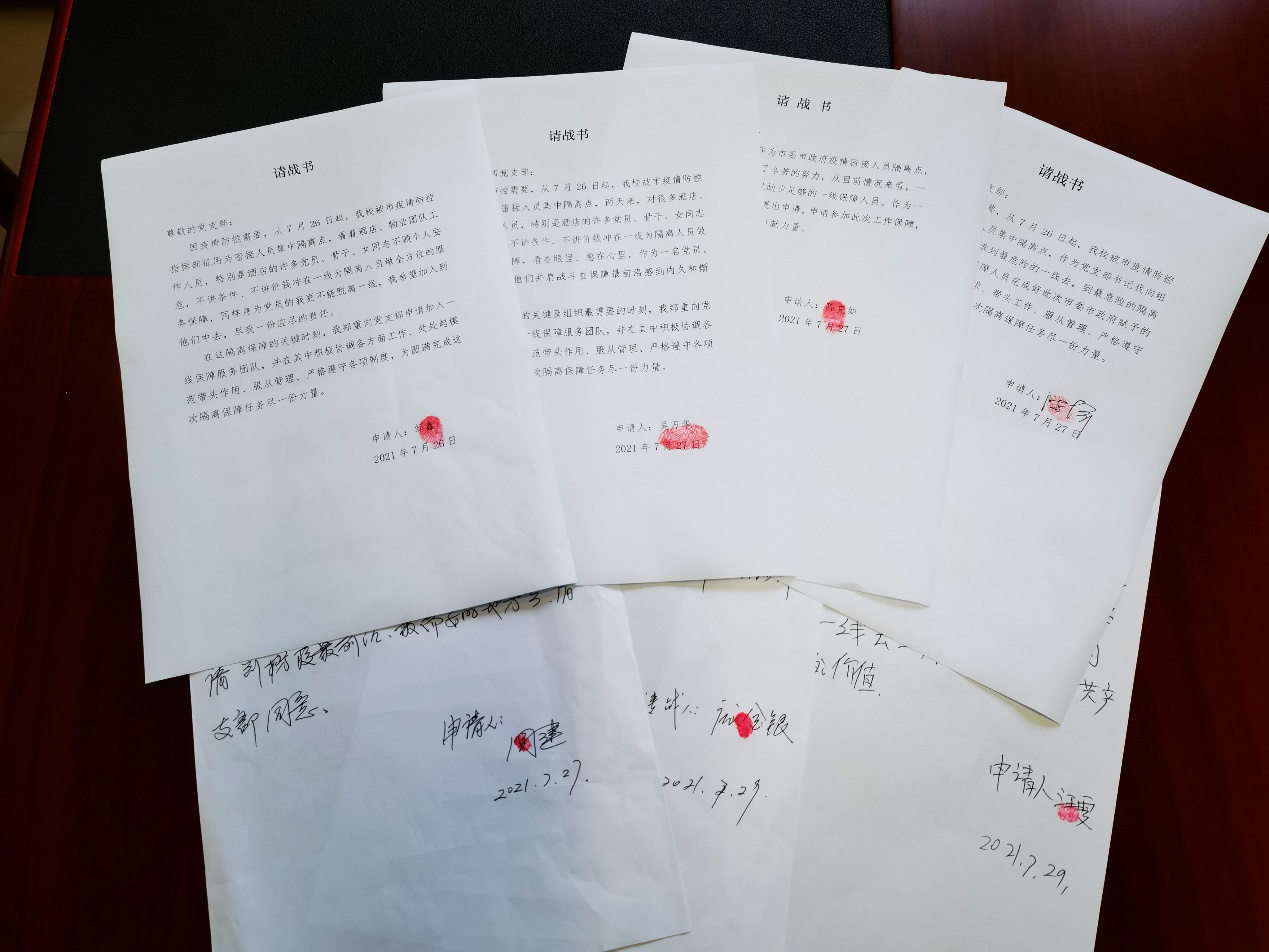 请战书
尊敬的党支部：
因疫情防控需要，从 7 月 26 日起，我校被市疫情防控
指挥部征用为密接人员集中隔离点，看着酒店、物业团队工
作人员，特别是酒店的许多党员、骨干、女同志不顾个人安
危，不讲条件、不讲价钱冲在一线为隔离人员做全方位的服
务保障，同样身为党员的我更不能脱离一线，我希望加入到
他们中去，尽我一份应尽的责任。
在这隔离保障的关键时刻，我郑重向党支部申请加入一
线保障服务团队，并在其中积极协调各方面工作，处处起模
范带头作用、服从管理、严格遵守各项制度，为圆满完成这
次隔离保障任务尽一份力量。
申请人：鑫
2021 年 7 月 26 日
请战书
党支部：
控需要，从 7 月 26 日起，我校被市疫情防控
密接人员集中隔离点，两天来，对很多酒店、
人员，特别是酒店的许多党员、骨干、女同志
不讲条件、不讲价钱冲在一线为隔离人员做
障，看在眼里、急在心里，作为一名党员、
他们并肩战斗在保障最前沿感到内疚和惭
的关键及组织最需要的时刻，我郑重向党
一线保障服务团队，并在其中积极协调各
范带头作用、服从管理、严格遵守各项
次隔离保障任务尽一份力量。
申请人：吴万华
2021 年 7 月 27 日
请 战 书
作为市委市政府疫情密接人员隔离点，
了辛苦的努力，从目前情况来看，一
缺少足够的一线保障人员。作为一
提出申请，申请参加此次工作保障，
献力量。
申请人：陈如
2021 年 7 月 27 日
请战书
支部：
要，从 7 月 26 日起，我校被市疫情防控
人员集中隔离点，作为党支部书记我向组
求到最危险的一线去，到最危险的隔离
障人员完成好此次市委市政府赋予的
求、带头工作、服从管理、严格遵守
次隔离保障任务尽一份力量。
申请人：
2021 年 7 月 27 日
请到抗疫最前沿、最
支部同意。
申请人：
周建
2021.7.27.
请战人：银
2021.7.29.
一线去
的价值.
共产
申请人 汪雯
2021.7.29,